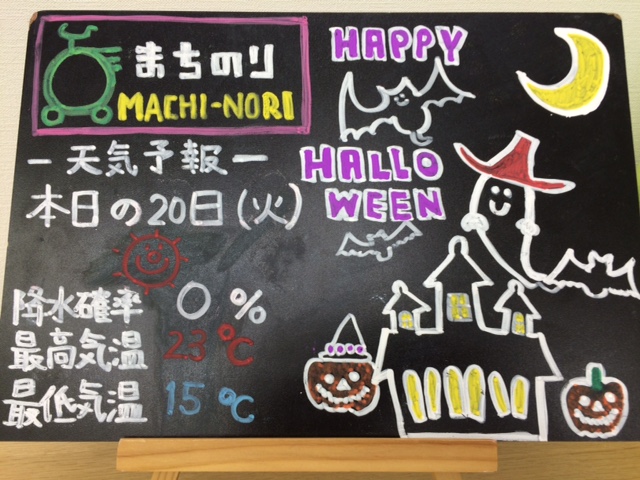 まちのり
MACHI-NORI
－天気予報－
本日の20日(火)
降水確率 0%
最高気温 23℃
最低気温 15℃
HAPPY
HALLO
WEEN